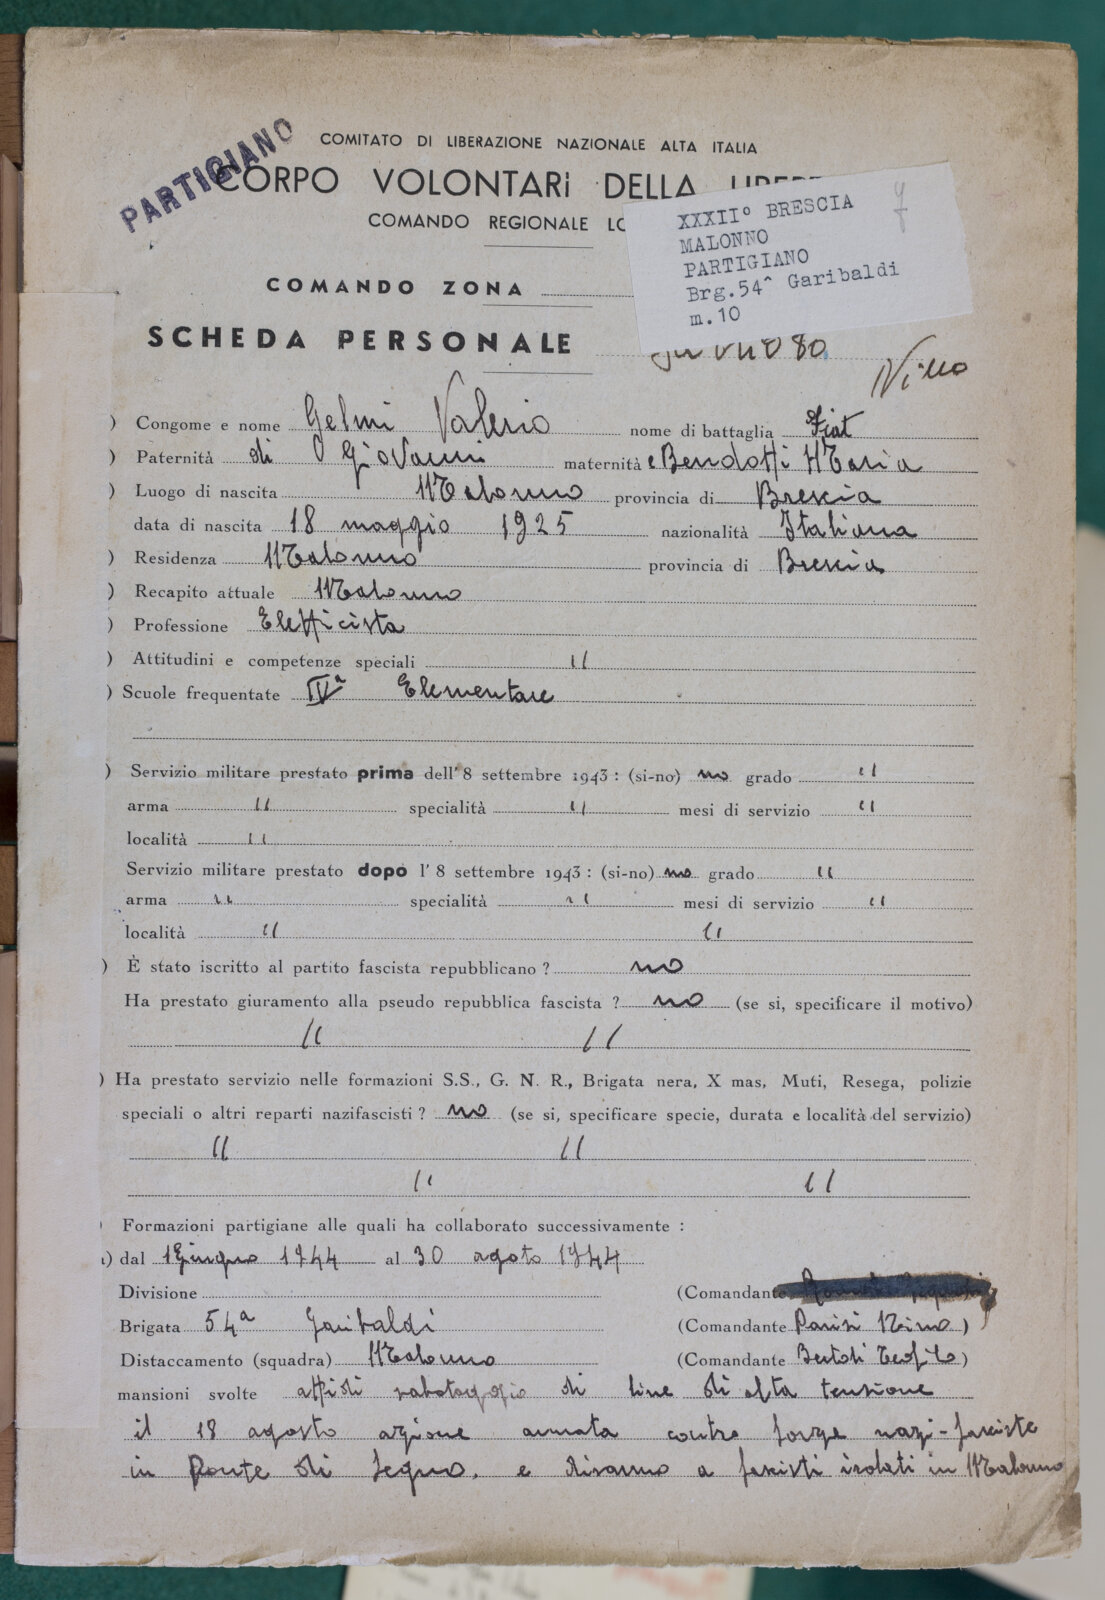 PARTIGIANO
COMITATO DI LIBERAZIONE NAZIONALE ALTA ITALIA
CORPO VOLONTARi DELLA
COMANDO REGIONALE
XXXII° BRESCIA
MALONNO
PARTIGIANO
Brg.54^ Garibaldi
m.10
COMANDO ZONA
SCHEDA PERSONALE
) Congome e nome Gelmi Valerio nome di battaglia Fiat
) Paternità di Giovanni maternità e Bendotti Maria
) Luogo di nascita Malonno provincia di Brescia
data di nascita 18 maggio 1925 nazionalità Italiana
) Residenza Malonno provincia di Brescia
) Recapito attuale Malonno
) Professione Elettricista
) Attitudini e competenze speciali "
) Scuole frequentate IVª Elementare
) Servizio militare prestato prima dell' 8 settembre 1943 : (si-no) no grado "
arma " specialità " mesi di servizio "
località "
Servizio militare prestato dopo l' 8 settembre 1943 : (si-no) no grado "
arma " specialità " mesi di servizio "
località " "
) È stato iscritto al partito fascista repubblicano ? no
Ha prestato giuramento alla pseudo repubblica fascista ? no (se si, specificare il motivo)
" "
) Ha prestato servizio nelle formazioni S.S., G. N. R., Brigata nera, X mas, Muti, Resega, polizie
speciali o altri reparti nazifascisti ? no (se si, specificare specie, durata e località del servizio)
" "
" "
) Formazioni partigiane alle quali ha collaborato successivamente :
) dal 1 Giugno 1944 al 30 agosto 1944
Divisione (Comandante
Brigata 54ª Garibaldi (Comandante Parisi Nino )
Distaccamento (squadra) Malonno (Comandante Bertoli Teofilo )
mansioni svolte atti di sabotaggio di line di alta tensione
il 18 agosto azione armata contro forze nazi-fasciste
in Ponte di Legno, e disarmo a fascisti isolati in Malonno